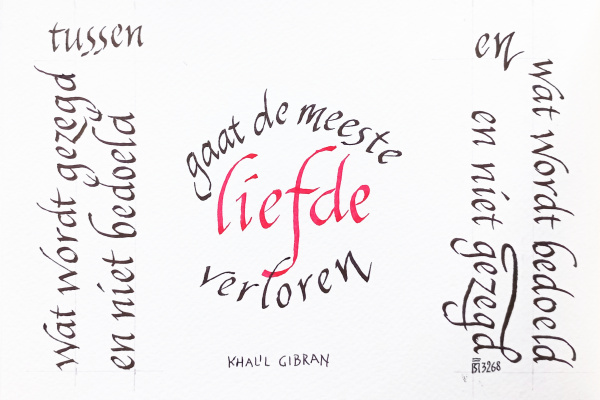 tussen
wat wordt gezegd
en niet bedoeld
en
wat wordt bedoeld
en niet gezegd
gaat de meeste
liefde
verloren
KHALIL GIBRAN